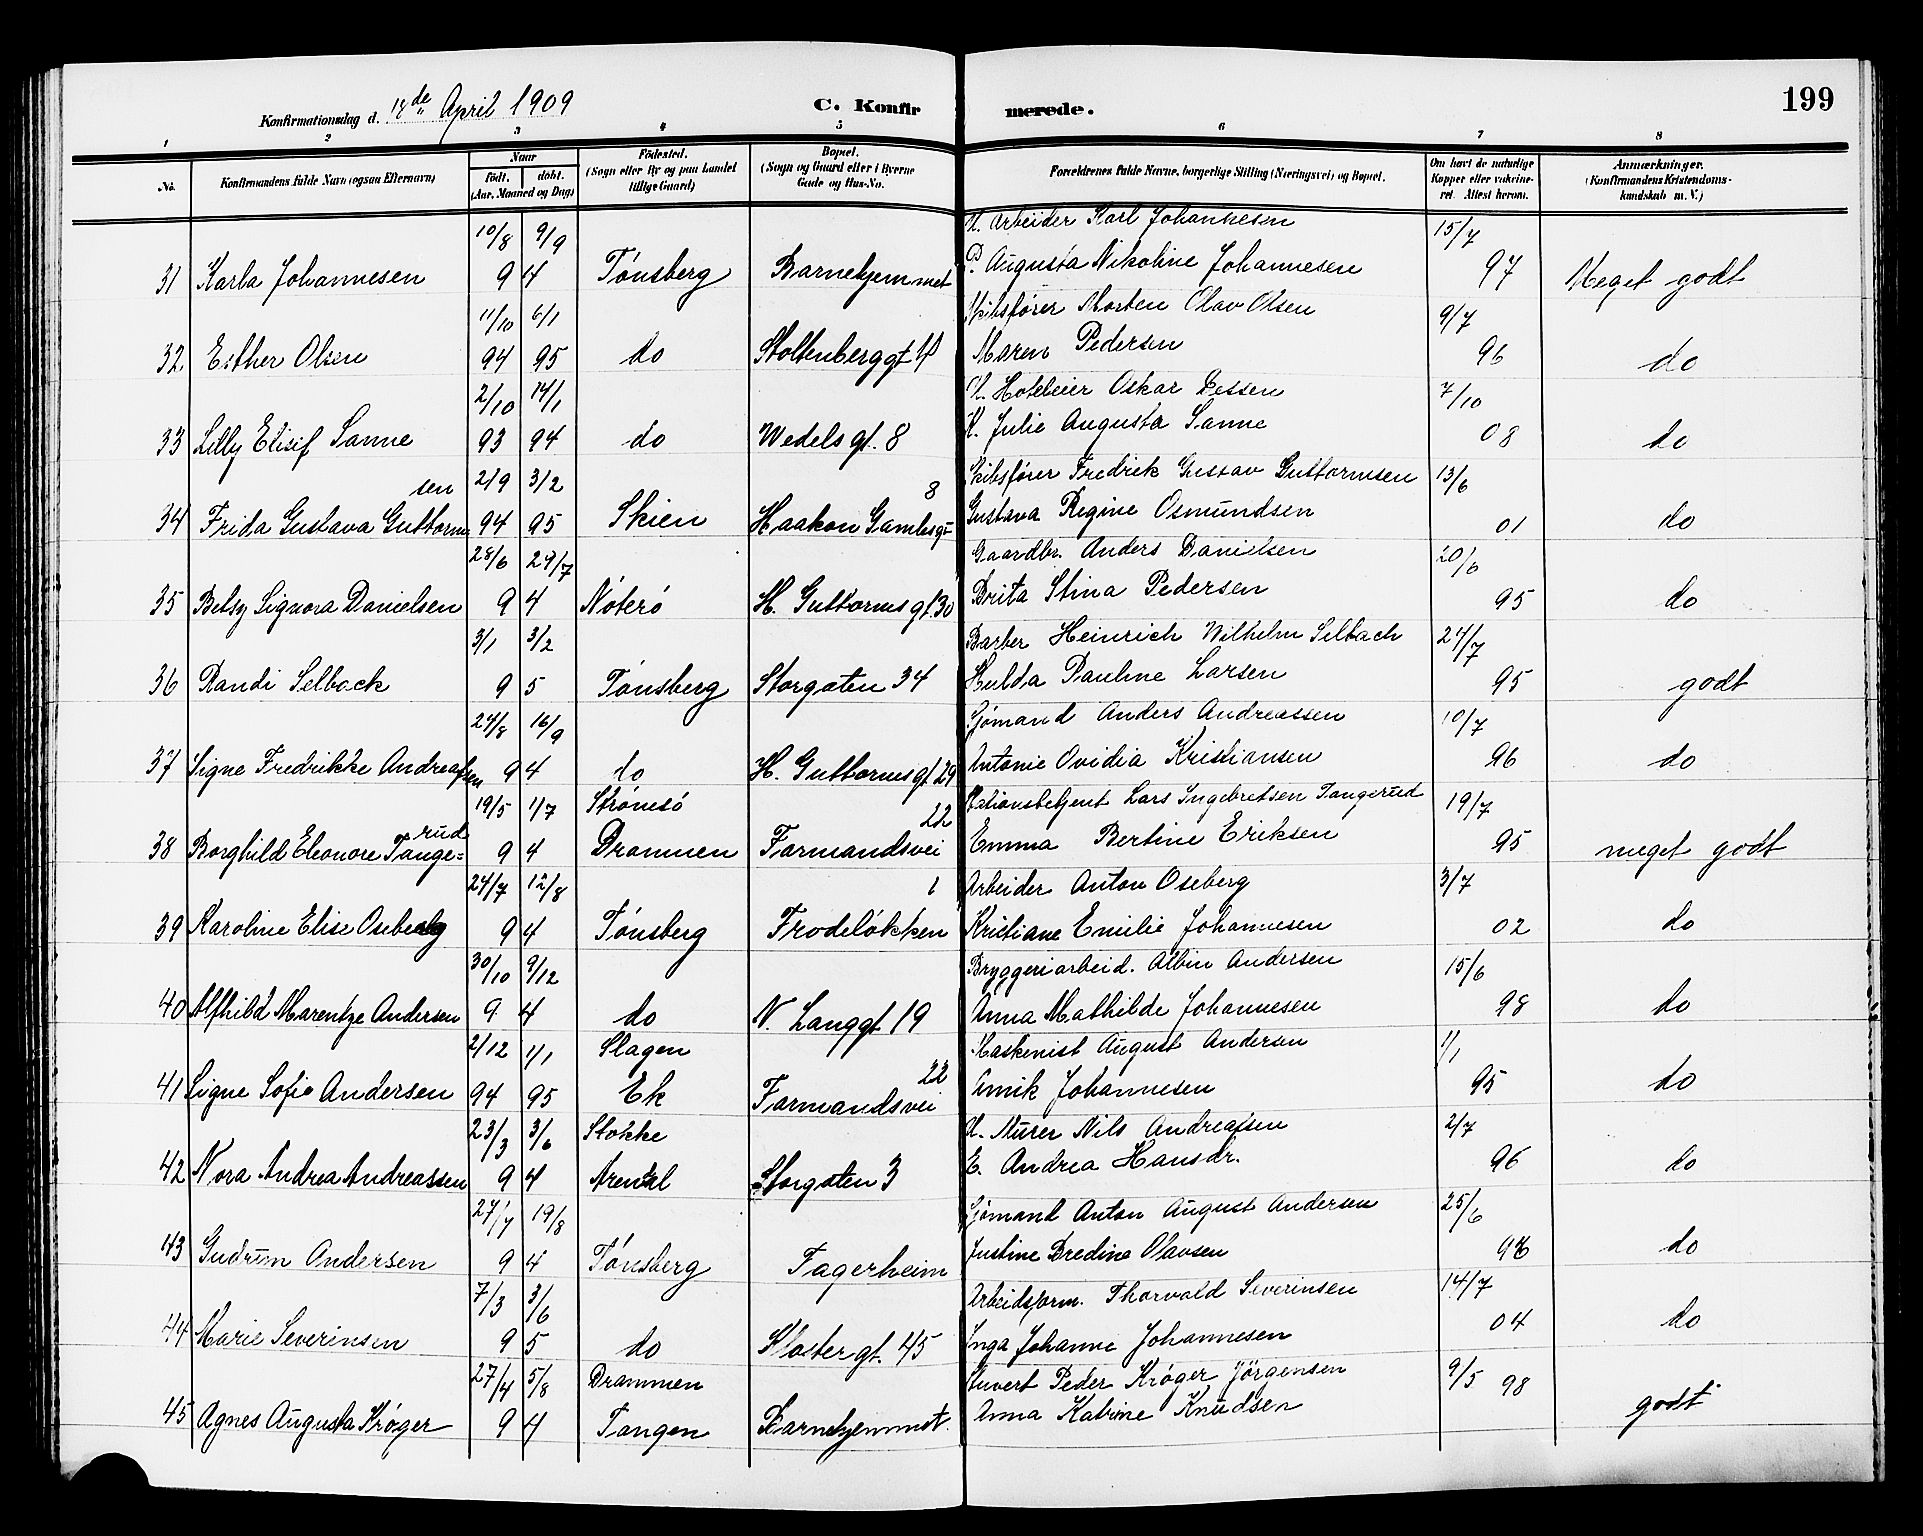 Konfirmationsdag d. 18de April 1909
C. Konfir merede. 199
1 2 3 4 5 6 7 8
No. Konfirmandens fulde Navn (ogsaa Efternavn) Naar født. døbt. (Aar, Maaned og Dag) Födested. (Sogn eller By og paa Landet tillige Gaard) Bopæl. (Sogn og Gaard eller i Byerne Gade og Hus-No. Forældrenes fulde Navne, borgerlige Stilling (Næringsvei) og Bopæl. Om havt de naturlige Kopper eller vakcineret. Attest herom. Anmærkninger. (Konfirmandens Kristendomskundskab m. V.)
10/8 9/9 Arbeider Karl Johannesen 15/7
31 Karla Johannesen 9 4 Tønsberg Barnehjemmet P. Augusta Nikoline Johannesen 97 Meget godt
11/10 6/1 Skibsfører Morten Olav Olsen 9/7
32. Esther Olsen 94 95 do Stoltenberggt 4 Maren Pedersen 96 do
2/10 14/1 Hoteleier Oskar Dessen 7/10
33 Lilly Elisif Sanne 93 94 do Wedels gt. 8 Julie Augusta Sanne 08 do
sen 2/9 3/2 8 Skibsfører Fredrik Gustav Guttormsen 13/6
34 Frida Gustava Guttorm 94 95 Skien Haakon Gamlesg= Gustava Regine Osmundsen 01 do
28/6 29/7 Gaardbr. Anders Danielsen 20/6
35 Betsy Signora Danielsen 9 4 Nøterø H. Guttormsgt 30 Brita Stina Pedersen 95 do
3/1 3/2 Barber Heinrich Wilhelm Selbach 24/7
36 Randi Selback 9 5 Tønsberg Storgaten 34 Hulda Pauline Larsen 95 godt
24/8 16/9 Sjømand Anders Andreassen 10/7
37 Signe Fredrikke Andreassen 9 4 do H. Guttormsgt 29 Antonie Ovidia Kristiansen 96 do
19/5 1/7 Strømsø 22 Stationsbetjent Lars Ingebretsen Tangerud 19/7
rud
38 Borghild Eleonore Tange= 9 4 Drammen Farmandsvei Emma Bertine Eriksen 95 meget godt
24/7 12/8 1 Arbeider Anton Oseberg 3/7
39 Karoline Elise Oseberg 9 4 Tønsberg Frodeløkken Kristiane Emilie Johannesen 02 do
30/10 9/12 Bryggeriarbeid. Albin Andersen 15/6
40 Alfhild Marentze Andersen 9 4 do N. Langgt 19 Anna Mathilde Johannesen 98 do
2/12 1/1 Slagen Maskenist August Andersen 1/1
22
41 Signe Sofie Andersen 94 95 Ek Farmandsvei Johannesen 95 do
23/3 3/6 Stokke Murer Nils Andreassen 2/7
42 Nora Andrea Andreassen 9 4 Storgaten 3 E. Andrea Hansdr. 96 do
27/7 19/8 Sjømand Anton August Andersen 25/6
43 Gudrun Andersen 9 4 Tønsberg Fagerheim Justine Bredine Olavsen do
7/3 3/6 Arbeidsform. Thorvald Severinsen 14/7
44 Marie Severinsen 9 5 do Klostergt. 45 Inga Johanne Johannesen 04 do
27/4 5/8 Drammen Stuvert Peder Krøger Jørgensen 9/5 98
45 Agnes Augusta Krøger 9 4 Tangen Barnehjemmet. Anna Katrine Knudsen godt